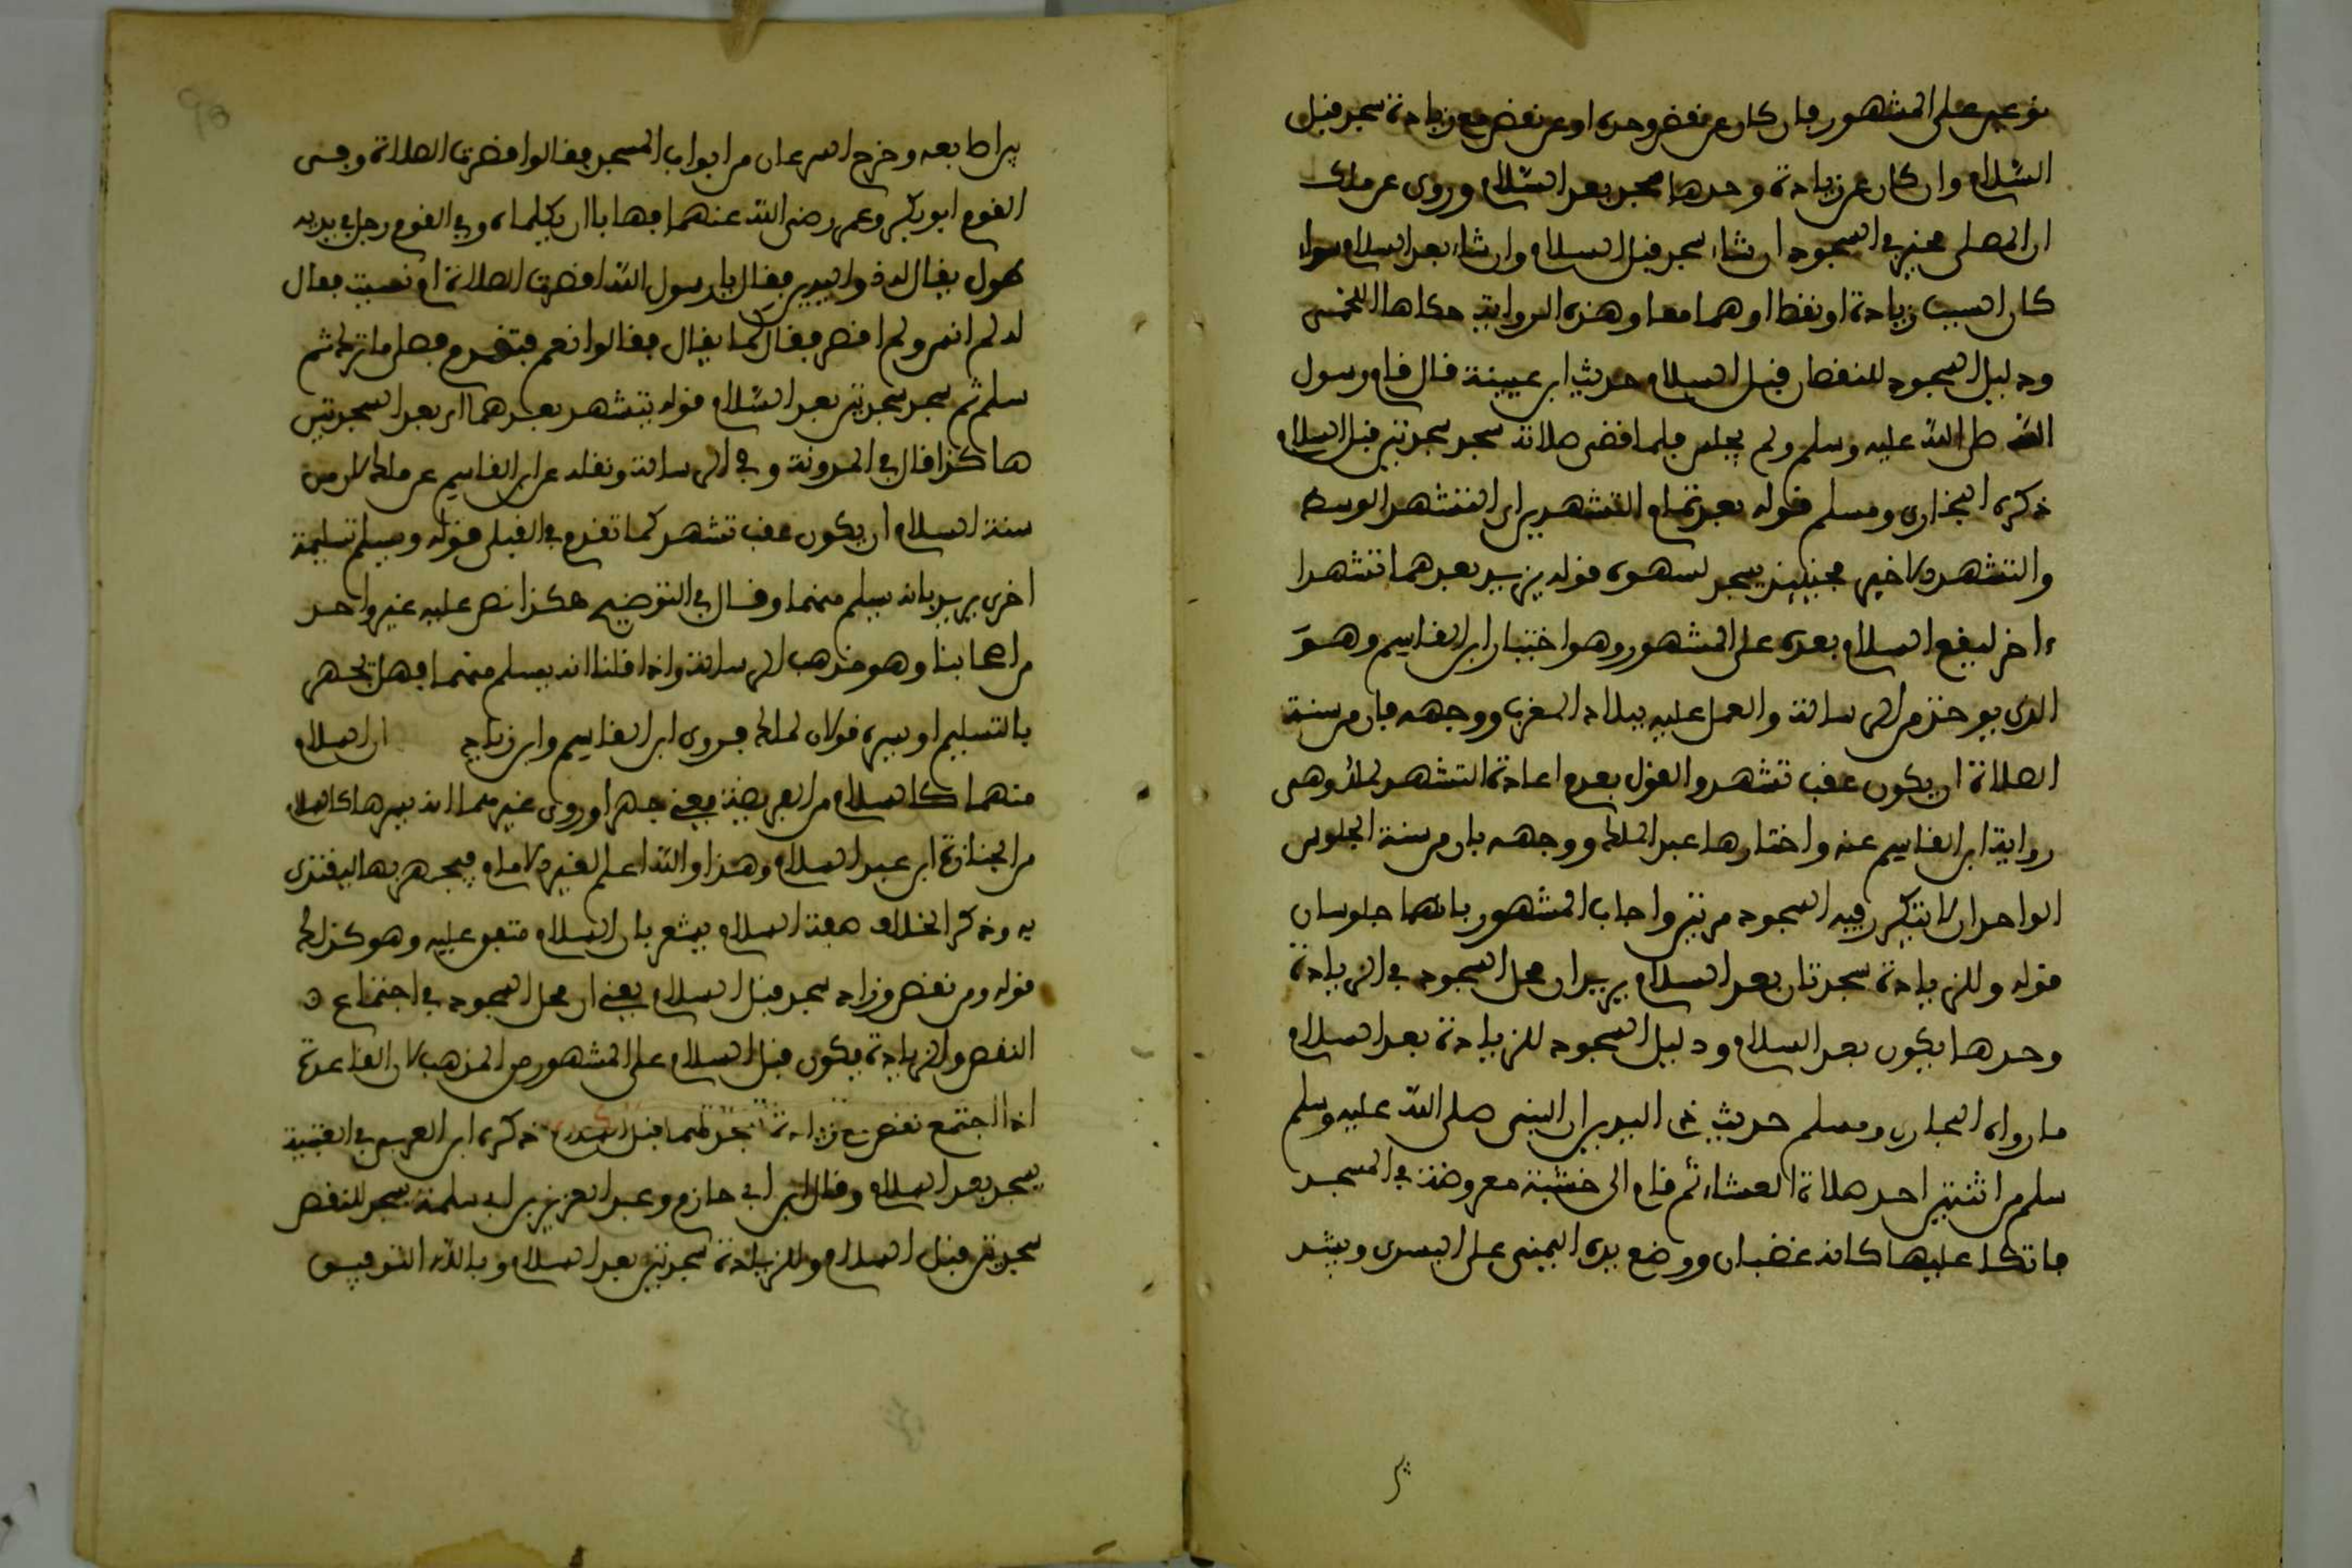 نوعين على المشهور فان كان عن نقص وحده او عن نقص مع زيادة سجد قبل
السّلام وان كان عن زيادة وحدها سجد بعد السّلام وروى عن مالك
ان المصلي مخير في السجود ان شاء سجد قبل السلام وان شاء بعد السلام سواء
كان السبب زيادة او نقصا او هما معا وهذه الرواية حكاها اللخمي
ودليل السجود للنقصان قبل السلام حديث ابن عيينة قال قام رسول
الله صلى الله عليه وسلم ولم يجلس فلما قضى صلاته سجد سجدتين قبل السلام
ذكره البخاري ومسلم قوله بعد تمام التشهدين اي التشهد الوسط
والتشهد الاخير فحينئذ يسجد لسهوه قوله يزيد بعدهما تشهدا
ءاخر ليقع السلام بعده على المشهور وهو اختيار ابن القاسم وهوَ
الذي يوخذ من الرسالة والعمل عليه ببلاد المغرب ووجهه بان من سنة
الصلاة ان يكون عقب تشهد والقول بعدم اعادة التشهد لمالك وهي
رواية ابن القاسم عنه واختارها عبد الملك ووجهه بان من سنة الجلوس
الواحد ان لا يتكرر فيه السجود مرتين واجاب المشهور بانهما جلوسان
قوله وللزيادة سجدتان بعد السلام يريد ان محل السجود في الزيادة
وحدها يكون بعد السلام ودليل السجود للزيادة بعد السلام
ما رواه البخاري ومسلم حديث ذي اليدين ان النبي صلى الله عليه وسلم
سلم من اثنتين احد صلاة العشاء ثم قام الى خشبة معروضة في المسجد
فاتكا عليها كانه غضبان ووضع يده اليمنى على اليسرى وشبك
بين اصابعه وخرج السرعان من ابواب المسجد فقالوا اقصرت الصلاة وفي
القوم ابو بكر وعمر رضي الله عنهما فهابا ان يكلماه وفي القوم رجل في يديه
طول يقال له ذو اليدين فقال يا رسول الله اقصرت الصلاة ام نسيت فقال
له لم انس ولم اقصر فقال كما يقال فقالوا نعم فتقدم فصلى ما ترك ثم
سلم ثم سجد سجدتين بعد السّلام قوله يتشهد بعدهما اي بعد السجدتين
هاكذا قال في المدونة وفي الرسالة ونقله عن ابن القاسم عن مالك لان من
سنة السلام ان يكون عقب تشهد كما تقدم في القبلي قوله ويسلم تسليمة
اخرى يريد بانه يسلم منهما وقال في التوضيح هكذا نص عليه غير واحد
من اصحابنا وهو مذهب الرسالة واذا قلنا انه يسلم منهما فهل يجهر
بالتسليم او يسره قولان لمالك فروى ابن القاسم وابن زياد ان السلام
منهما كالسلام من الفريضة يعني جهرا وروى غيرهما انه يسرها كالسلام
من الجنازة ابن عبد السلام وهذا والله اعلم لغير الامام فيجهر بها ليقتدى
به وذكر الخلاف صفة السلام يشعر بان السلام متفق عليه وهو كذلك
قوله ومن نقص وزاد سجد قبل السلام يعني ان محل السجود في اجتماع
النقص والزيادة يكون قبل السلام على المشهور من المذهب لان القاعدة
اذا اجتمع نقص مع زيادة سجد لهما قبل السلام ذكره ابن العربي في القبس
يسجد بعد السلام وقال ابن ابي حازم وعبد العزيز بن ابي سلمة يسجد للنقص
سجدتين قبل السلام وللزيادة سجدتين بعد السلام وبالله التوفيق